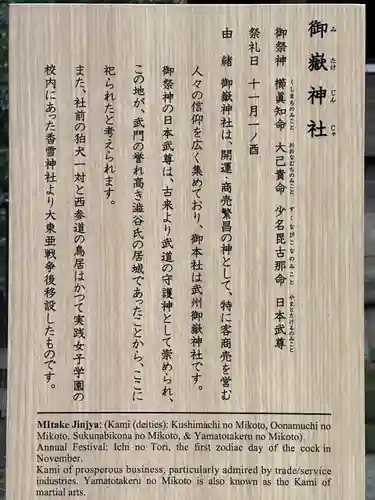 御嶽神社
み たけ じん じゃ
御祭神 櫛眞知命 大己貴命 少名毘古那命 日本武尊
くしまちのみこと おおなむちのみこと すくなびこなのみこと やまとたけるのみこと
祭礼日 十一月一ノ酉
由 緒 御嶽神社は、開運・商売繁昌の神として、特に客商売を営む
人々の信仰を広く集めており、御本社は武州御嶽神社です。
御祭神の日本武尊は、古来より武道の守護神として崇められ、
この地が、武門の誉れ高き澁谷氏の居城であったことから、ここに
祀られたと考えられます。
また、社前の狛犬一対と西参道の鳥居はかつて実践女子学園の
校内にあった香雪神社より大東亜戦争後移設したものです。
MItake Jinjya: (Kami (deities): Kushimachi no Mikoto, Oonamuchi no
Mikoto, Sukunabikona no Mikoto, & Yamatotakeru no Mikoto).
Annual Festival: Ichi no Tori, the first zodiac day of the cock in
November.
Kami of prosperous business, particularly admired by trade/service
industries. Yamatotakeru no Mikoto is also known as the Kami of
martial arts.